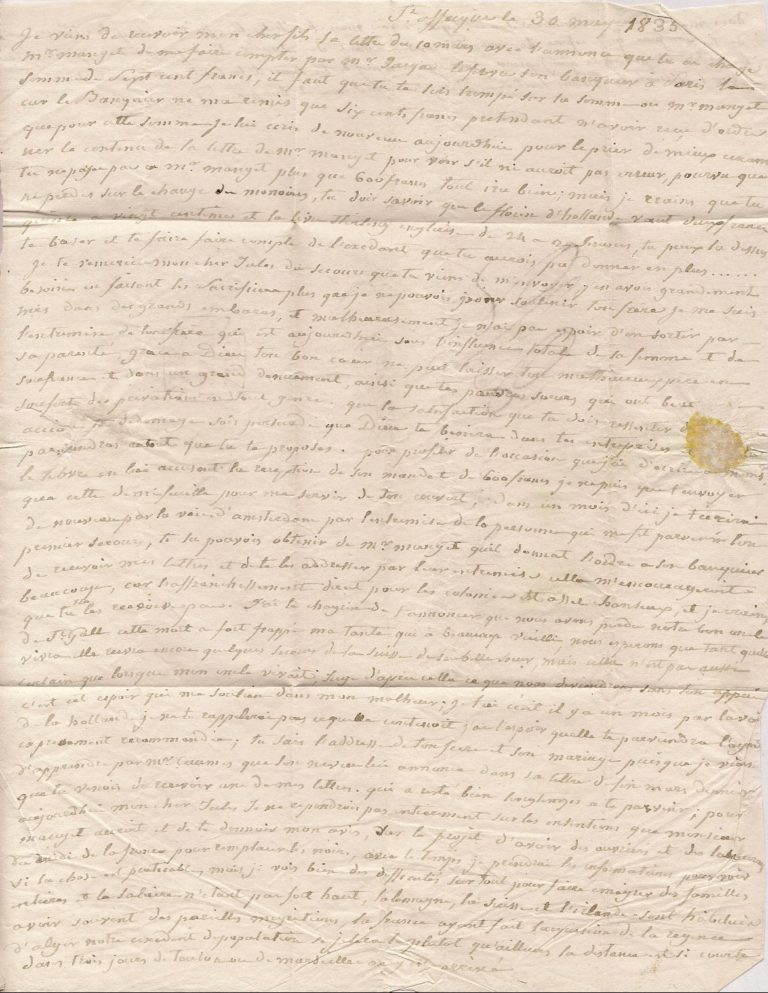 St affrique le 30 may 1835
Je viens de recevoir mon cher fils ta lettre du 10 mars avec l'annonce que tu as chargé
Mr manget de me faire compter par Mr son banquier à paris la
somme de sept cent francs, il faut que tu te sois trompé sur la somme ou Mr manget
car le Banquier ne m'a remis que six cents francs pretendant n'avoir reçu d'ordre
que pour cette somme. Je lui ecris de nouveau aujourdhuy pour le prier de mieux
le contenu de la lettre de Mr manget pour voir s'il ni auroit pas erreur, pourvu que
tu ne payes pas a Mr manget plus que 600 francs tout ira bien; mais je crains que tu
ne perdes sur le change de monoies, tu dois savoir que le florin d'hollande vaut deux francs
a vingt centimes et la livre sterling englaise de 24 a francs, tu peux la dessus
te baser et te faire faire compte de l'excedant que tu aurois pu donner en plus......
Je te remercie mon cher Jules du secours que tu viens de m'envoyer, j'en avois grandement
besoin en faisant les sacrifices plus que je ne pouvois pour soutenir ton frère je me suis
mis dans des grands embaras, et malheureusement je n'ai pas espoir d'en sortir par
l'entremise de ton frère qui est aujourdhuy sous l'influence totale de sa femme et de
sa parente grace a Dieu ton bon cœur ne peut laisser ton malheureux père en
soufrance et dans un grand denuement, ainsi que tes pauvres sœurs qui ont
soufert des privations en tout genre. que la satisfaction que tu dois ressentir
t'en dedomage sois persuadé que Dieu te benira dans tes entreprises
parviendras a tout ce que tu te proposes. pour profiter de l'occasion que j'ai d'ecrire a mons.
le en lui accusant la reception de son mandat de 600 francs je ne puis que t'envoyer
que cette demi feuille pour me servir de son couvert, dans un mois d'ici je t'ecrirai
de nouveau par la voie d'amsterdam par l'entremise de la personne qui me fit parvenir ton
premier secours, si tu pouvois obtenir de Mr manget qu'il donnat l'ordre a son banquier
de recevoir mes lettres et de te les addresser par leur entremise cella m'encourageroit
beaucoup, car l'affranchissement direct pour les colonies est assez honereux, et je crains
que tu ne les recoives pas. J'ai le chagrin de t'annoncer que nous avons perdu notre bon oncle
de St Gall cette mort a fort frappé ma tante qui a beaucoup vieilli nous esperons que tant quelle
vivra elle recevra encore quelques secours de la suisse de sa belle sœur mais cella n'est pas aussi
certain que lorsque mon oncle vivait, juge d'apres cella ce que nous deviendrons sans ton appui
c'est cet espoir qui me soutien dans mon malheur. Je t'ai ecrit il y a un mois par la voie
de la hollande, je ne te rappellerai pas ce quelle contenoit j'ai l'espoir quelle te parviendra l'ayant
expressement recommandée; tu sais l'addresse de ton frere et son mariage puisque je viens
d'apprendre par Mr que son neveu lui annonce dans sa lettre de fin mars dernier
que tu venois de recevoir une de mes lettres. qui a resté bien longtemps a te parvenir; pour
aujourdhuy mon cher Jules je ne repondrois pas entierement sur les intentions que monsieur
manget auroit et de te donner mon avis, sur le projet d'avoir des ouvriers et des laboureurs
du midi de la france pour remplacer les noirs, avec le temps je prendrai les informations pour voir
si la chose est praticable, mais je vois bien des difficultés sur tout pour faire emigrer des familles
entieres et le salaire n'etant pas fort haut, l'alemagne, la suisse et l'irlande sont habitués
avoir souvent des pareilles migrations, la france ayant fait l'acquisition de la regence
d'alger notre excedent de population se jettera la plutot qu'ailleurs la distance est si courte
dans trois jours de toulon ou de marseille on y est arrivé